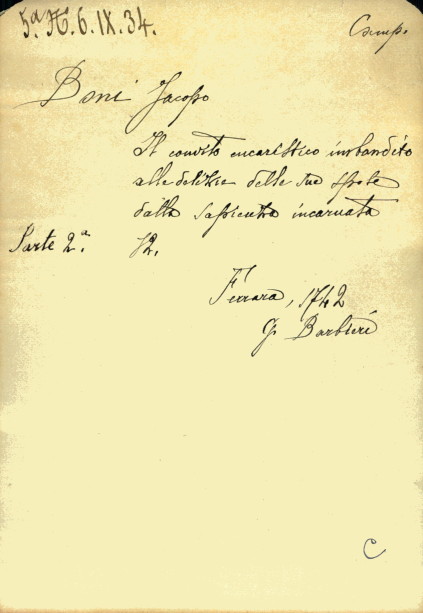 5.ª H. 6. IX. 34.
Comp.
Boni Jacopo
Il convito eucaristico imbandito
alle delizie delle sue spose
dalla sapienza incarnata
Parte 2.ª 12.
Ferrara, 1742
G. Barbieri
C